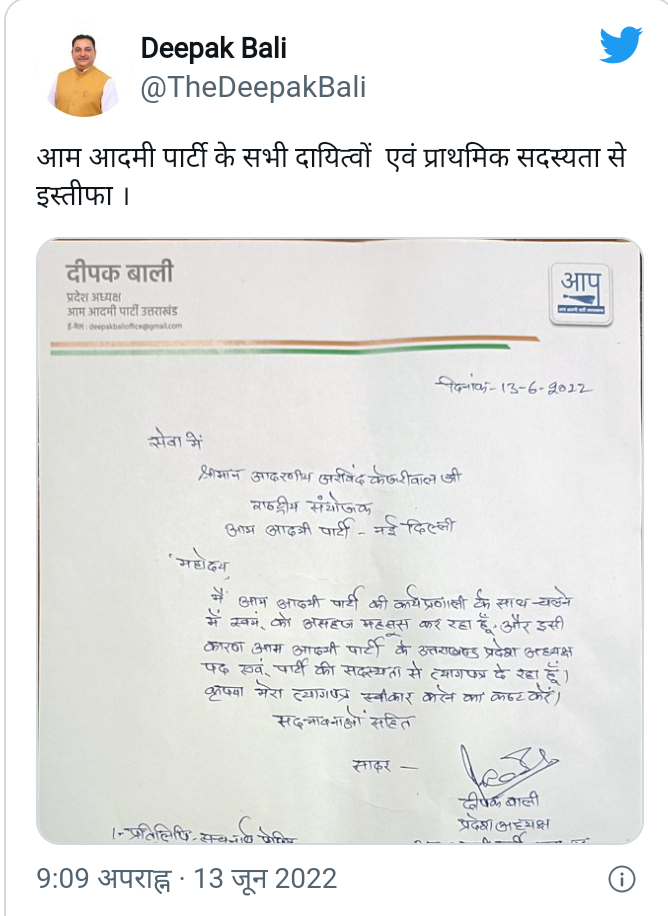 Deepak Bali
@TheDeepakBali
आम आदमी पार्टी के सभी दायित्वों एवं प्राथमिक सदस्यता से
इस्तीफा ।
दीपक बाली
प्रदेश अध्यक्ष
आम आदमी पार्टी उत्तराखंड
ई-मेल : deepakbalioffice@gmail.com
आप
दिनांक- 13-6-2022
सेवा में
श्रीमान आदरणीय अरविंद केजरीवाल जी
राष्ट्रीय संयोजक
आम आदमी पार्टी - नई दिल्ली
महोदय,
मैं आम आदमी पार्टी की कार्यप्रणाली के साथ चलने
में स्वयं को असहज महसूस कर रहा हूँ, और इसी
कारण आम आदमी पार्टी के उत्तराखण्ड प्रदेश अध्यक्ष
पद एवं पार्टी की सदस्यता से त्यागपत्र दे रहा हूँ।
कृपया मेरा त्यागपत्र स्वीकार करने का कष्ट करें।
सद्भावनाओं सहित
सादर —
दीपक बाली
प्रदेश अध्यक्ष
1- प्रतिलिपि-
9:09 अपराह्न · 13 जून 2022